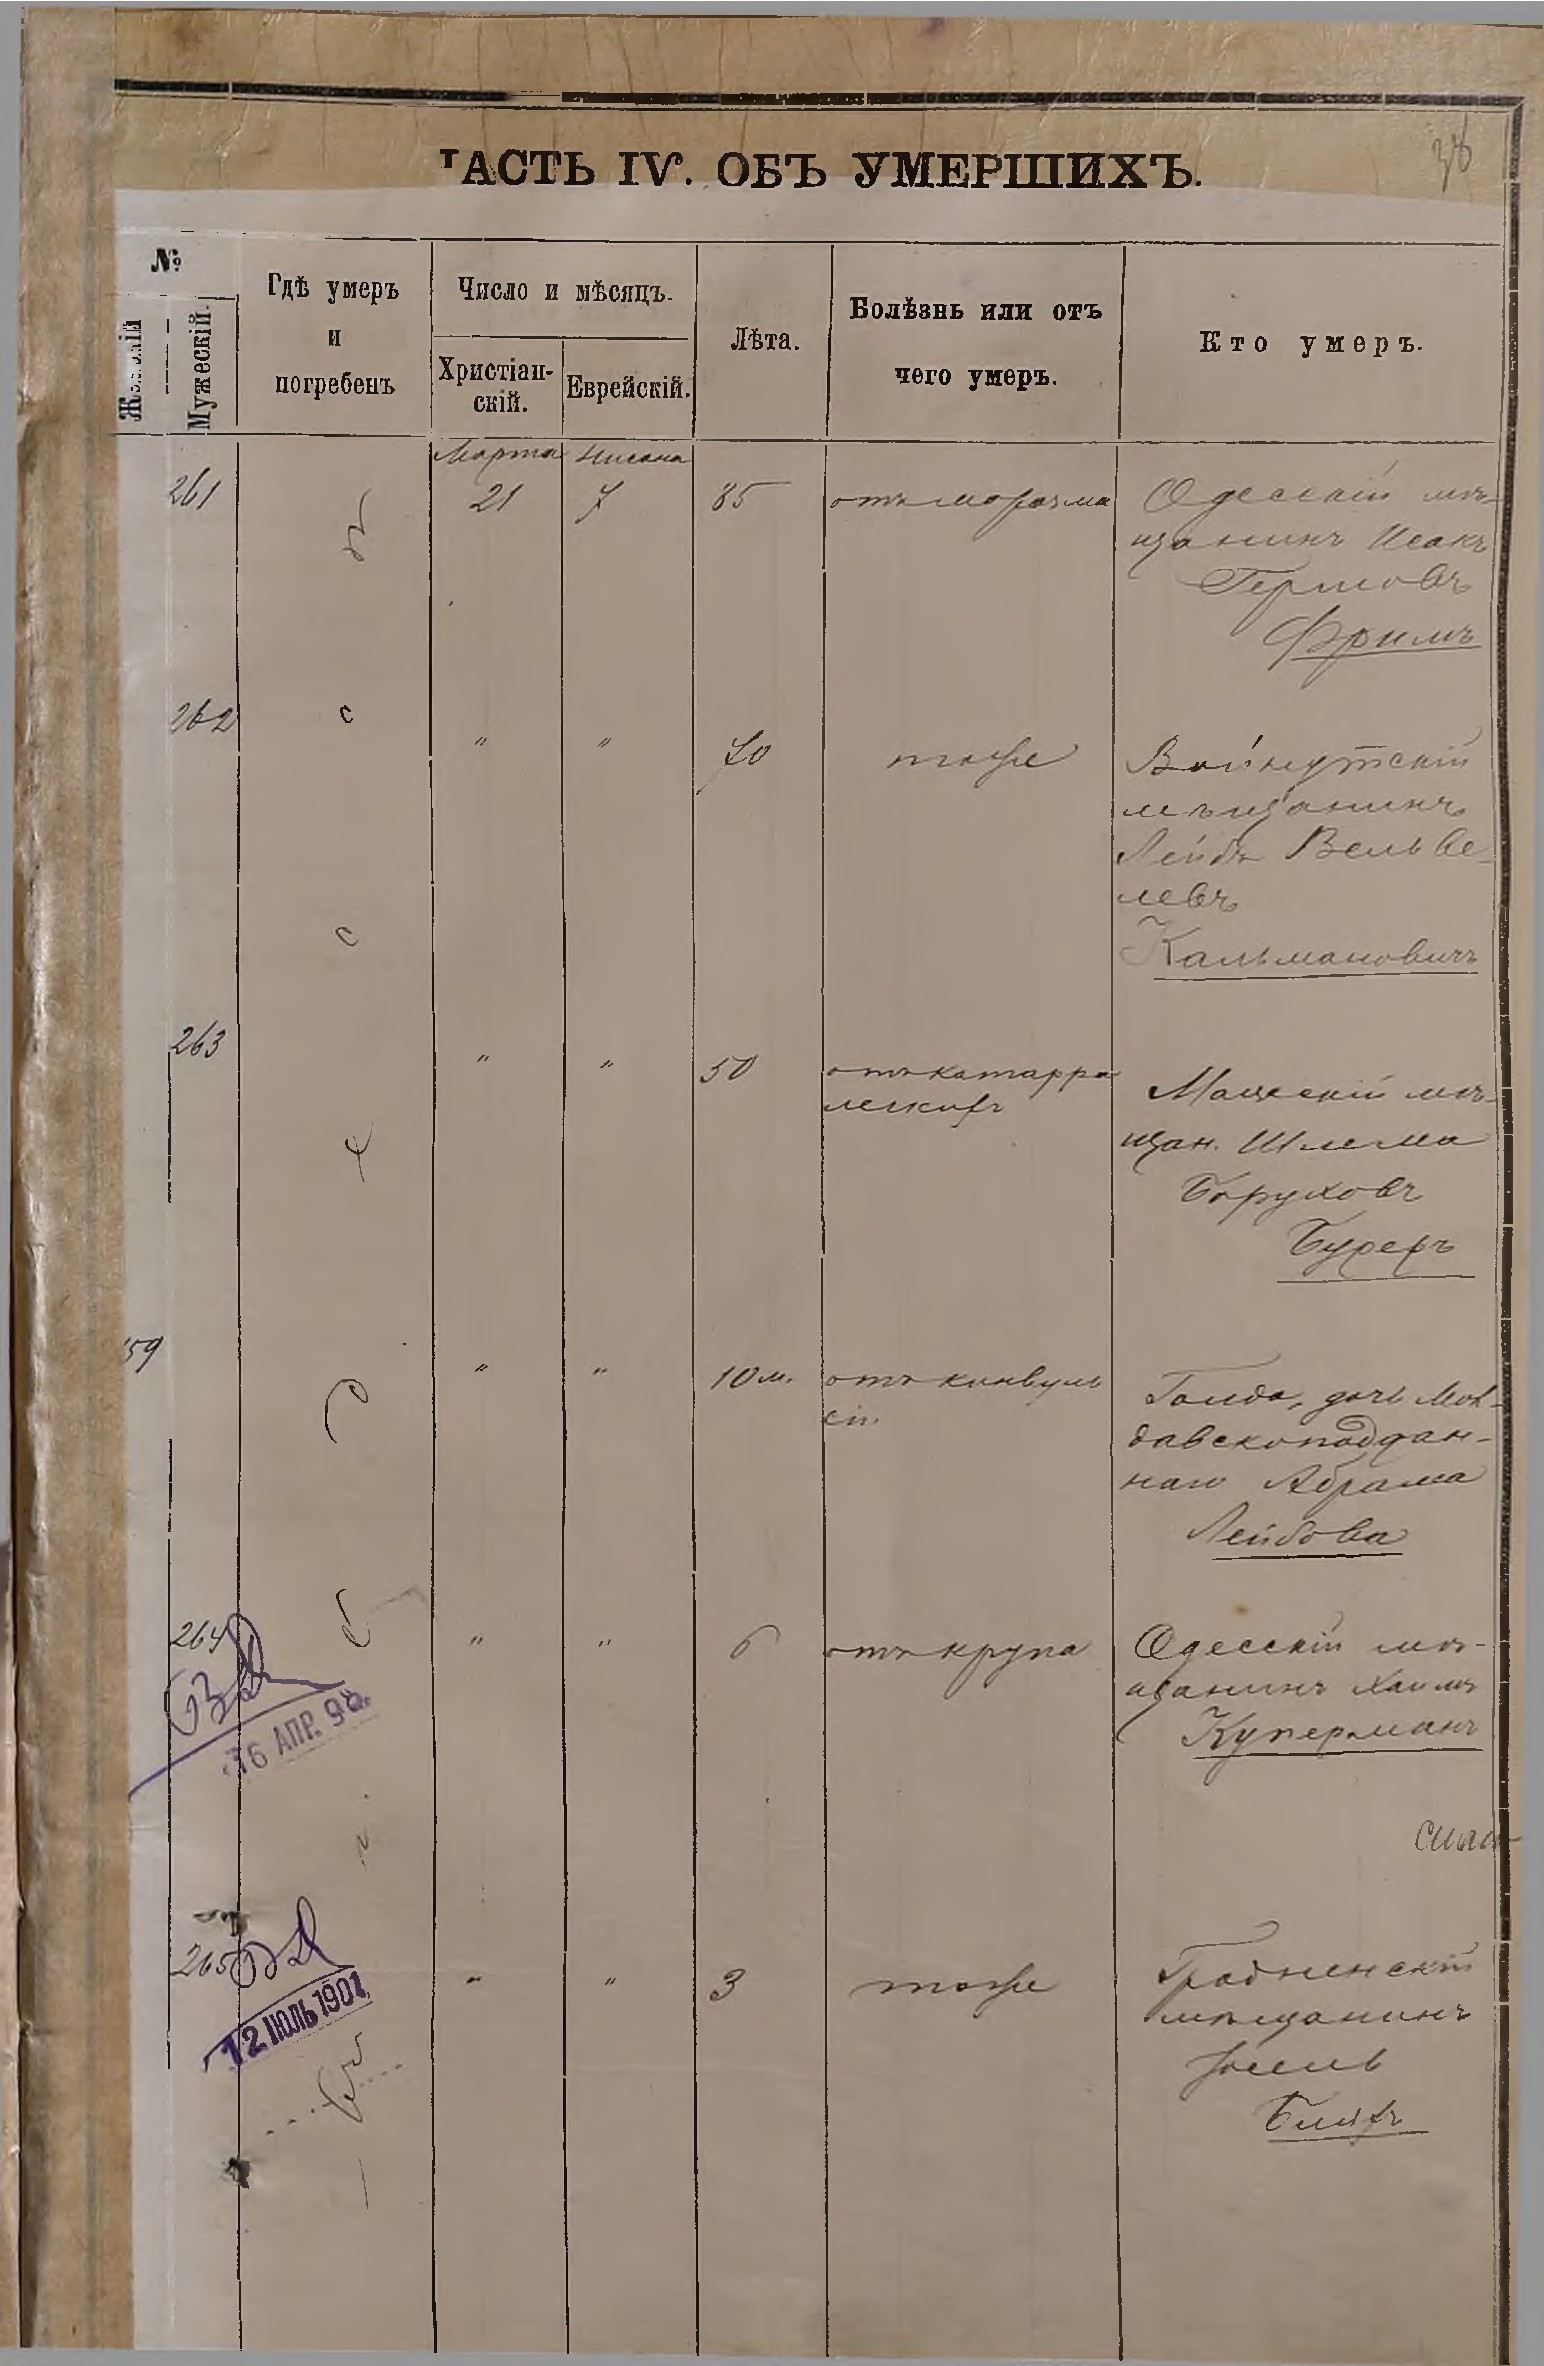 38
ЧАСТЬ IV. ОБЪ УМЕРШИХЪ.
№
Женскій
Мужескій.
Гдѣ умеръ
и
погребенъ
Число и мѣсяцъ.
Христіан-
скій.
Еврейскій.
Лѣта.
Болѣзнь или отъ
чего умеръ.
Кто умеръ.
Марта Нисана
261 21 7 85 отъ маразма Одесскій мѣ-
щанинъ Исакъ
Гершовъ
Фримъ
262 с " " 70 тоже Войнутскій
мѣщанинъ
Лейбъ Вельве-
левъ
Кальмановичъ
с
263 " " 50 отъ катарра
легкихъ
мѣ-
щан. Шлема
Боруховъ
Бухеръ
159 " " 10 м. отъ конвуль
сій
Голда, дочь Мол-
давскоподдан-
наго Абрама
Лейбова
264 " " 6 отъ крупа Одесскій мѣ-
щанинъ Хаимъ
Куперманъ
16 АПР. 98
265 " " 3 тоже Гродненскій
мѣщанинъ
Іосель
12 ІЮЛЬ 1901